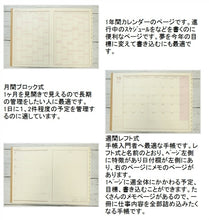 1年間カレンダーのページです。進
行中のスケジュールをなどを書くのに
便利なページです。夢を今年の目
標に変えて書き込むにも最適で
す。
月間ブロック式
1ヶ月を見開きで見えるので長期
の管理をしたい人に最適です。
1日に1、2件程度の予定を管理す
るのに適しています。
週間レフト式
手帳入門者へ最適な手帳です。レ
フト式と名前のとおり、ページ左側
に特徴があり日付欄が左側にあ
り、右のページにメモのページがあ
ります。
1ページに週全体にかかわる予定、
目標、書き込むことができます。た
くさんのメモページがあるので、一
冊に仕事内容を全部詰め込みたく
なる手帳です。